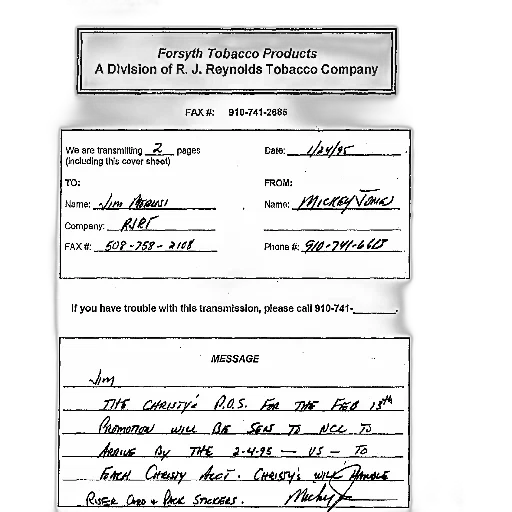 Forsyth Tobacco Products
A Division of R. J. Reynolds Tobacco Company
FAX #: 910-741-2685
We are transmitting 2 pages
(including this cover sheet)
Date: 1/24/95
TO:
FROM:
Name: Jim
Name: Mickey Jones
Company: RJRT
FAX #: 508-758-2108
Phone #: 910-741-
If you have trouble with this transmission, please call 910-741-______.
MESSAGE
Jim
THE CHRISTY'S P.O.S. FOR THE FEB 13th
PROMOTION WILL BE SENT TO NCC TO
ARRIVE BY THE 2-4-95 — VS — TO
EACH CHRISTY ACCT. CHRISTY'S WILL HANDLE
RISER CARD & PACK STICKERS. Mickey